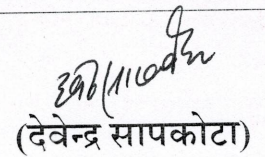 (देवेन्द्र सापकोटा)